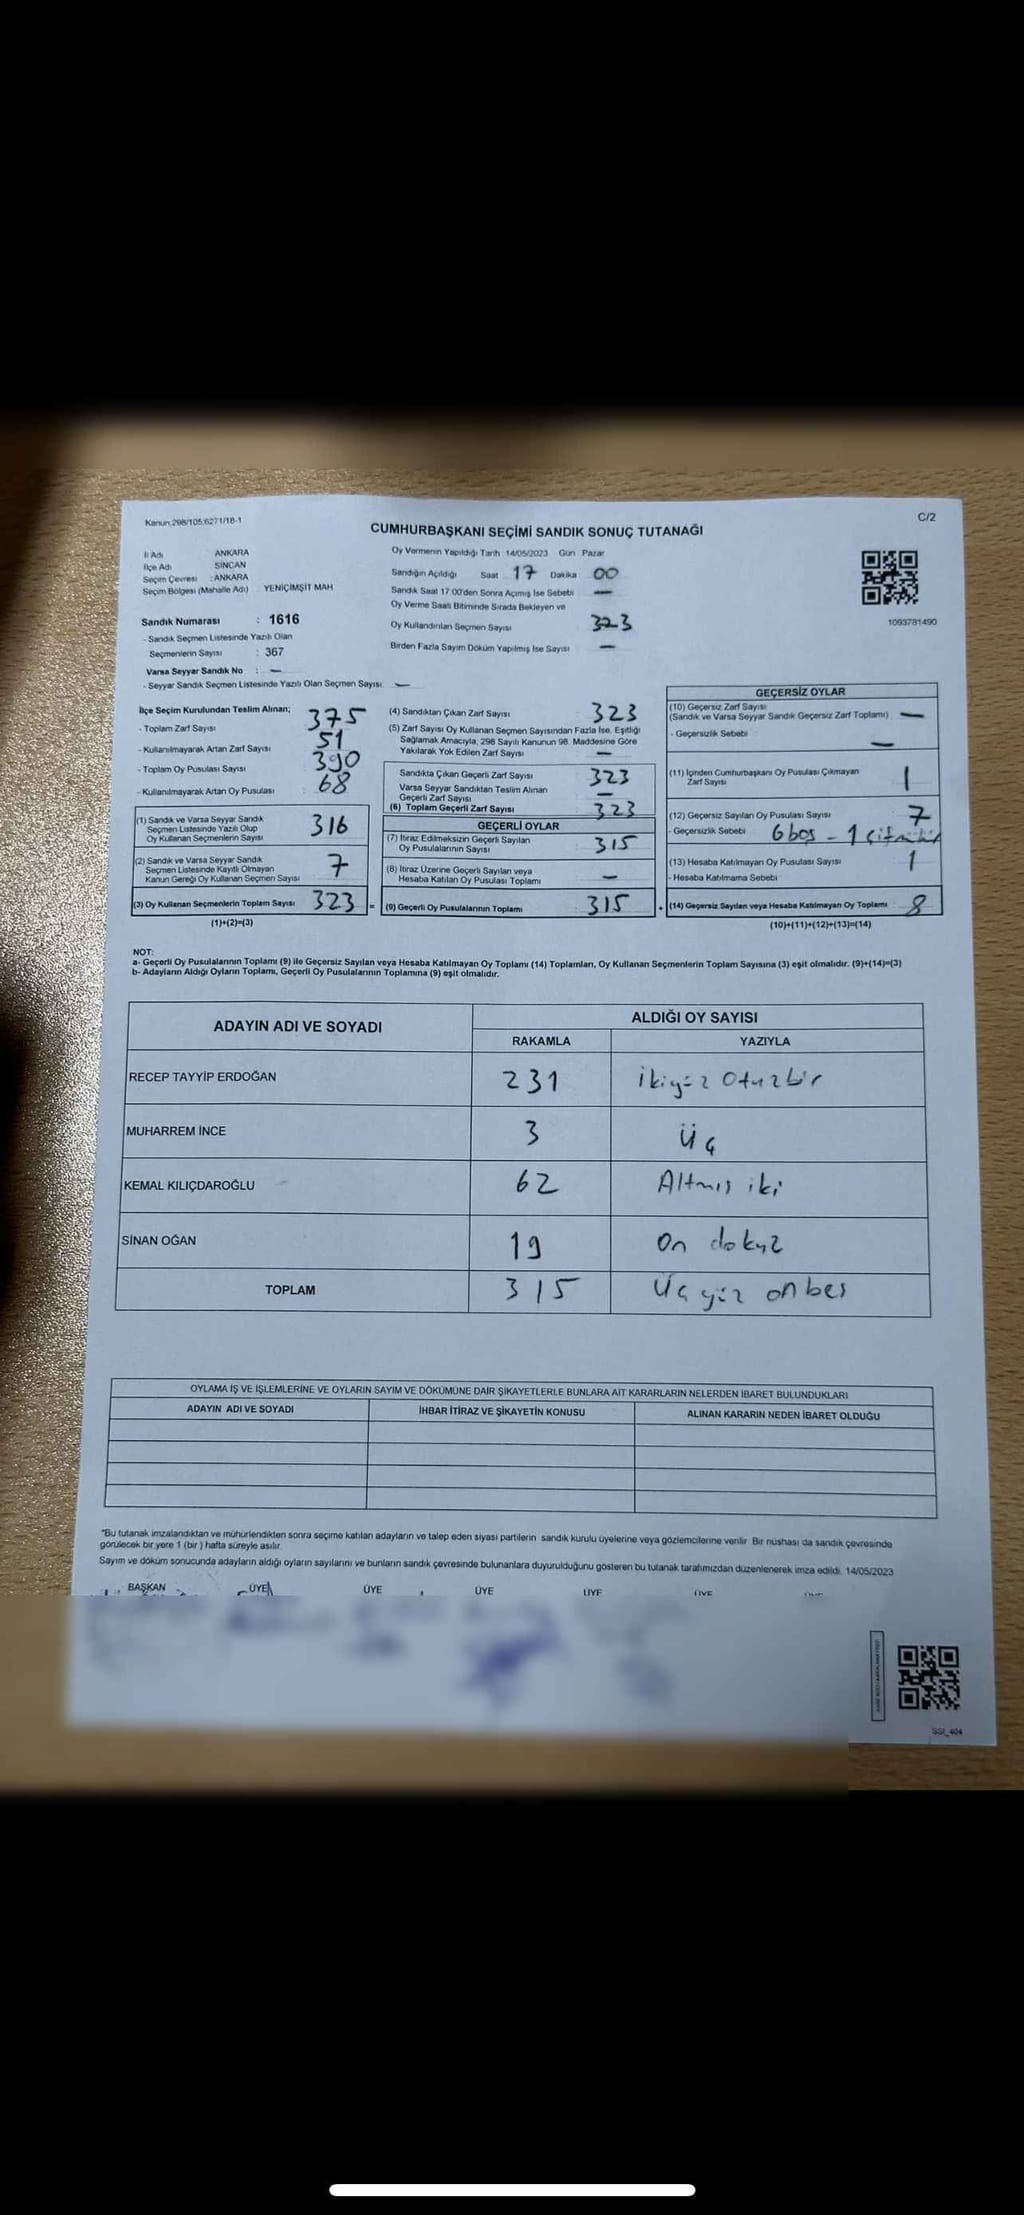 Kanun:298/105;6271/18-1
C/2
CUMHURBAŞKANI SEÇİMİ SANDIK SONUÇ TUTANAĞI
İl Adı ANKARA
İlçe Adı SİNCAN
Seçim Çevresi : ANKARA
Seçim Bölgesi (Mahalle Adı) YENİÇİMŞİT MAH
Sandık Numarası : 1616
- Sandık Seçmen Listesinde Yazılı Olan
Seçmenlerin Sayısı : 367
Varsa Seyyar Sandık No : —
- Seyyar Sandık Seçmen Listesinde Yazılı Olan Seçmen Sayısı: —
Oy Vermenin Yapıldığı Tarih : 14/05/2023 Gün : Pazar
Sandığın Açıldığı Saat : 17 Dakika 00
Sandık Saat 17.00'den Sonra Açımış İse Sebebi —
Oy Verme Saati Bitiminde Sırada Bekleyen ve
Oy Kullandırılan Seçmen Sayısı 323
Birden Fazla Sayım Döküm Yapılmış İse Sayısı —
1093781490
İlçe Seçim Kurulundan Teslim Alınan;
- Toplam Zarf Sayısı 375
- Kullanılmayarak Artan Zarf Sayısı 51
- Toplam Oy Pusulası Sayısı 390
- Kullanılmayarak Artan Oy Pusulası : 68
(1) Sandık ve Varsa Seyyar Sandık
Seçmen Listesinde Yazılı Olup
Oy Kullanan Seçmenlerin Sayısı 316
(2) Sandık ve Varsa Seyyar Sandık
Seçmen Listesinde Kayıtlı Olmayan
Kanun Gereği Oy Kullanan Seçmen Sayısı 7
(3) Oy Kullanan Seçmenlerin Toplam Sayısı 323 =
(1)+(2)=(3)
(4) Sandıktan Çıkan Zarf Sayısı 323
(5) Zarf Sayısı Oy Kullanan Seçmen Sayısından Fazla İse, Eşitliği
Sağlamak Amacıyla, 298 Sayılı Kanunun 98. Maddesine Göre
Yakılarak Yok Edilen Zarf Sayısı —
Sandıkta Çıkan Geçerli Zarf Sayısı 323
Varsa Seyyar Sandıktan Teslim Alınan
Geçerli Zarf Sayısı —
(6) Toplam Geçerli Zarf Sayısı 323
GEÇERLİ OYLAR
(7) İtiraz Edilmeksizin Geçerli Sayılan
Oy Pusulalarının Sayısı 315
(8) İtiraz Üzerine Geçerli Sayılan veya
Hesaba Katılan Oy Pusulası Toplamı —
(9) Geçerli Oy Pusulalarının Toplamı 315
GEÇERSİZ OYLAR
(10) Geçersiz Zarf Sayısı
(Sandık ve Varsa Seyyar Sandık Geçersiz Zarf Toplamı) —
- Geçersizlik Sebebi : —
(11) İçinden Cumhurbaşkanı Oy Pusulası Çıkmayan
Zarf Sayısı 1
(12) Geçersiz Sayılan Oy Pusulası Sayısı : 7
- Geçersizlik Sebebi 6 boş - 1
(13) Hesaba Katılmayan Oy Pusulası Sayısı 1
- Hesaba Katılmama Sebebi :
(14) Geçersiz Sayılan veya Hesaba Katılmayan Oy Toplamı 8
(10)+(11)+(12)+(13)=(14)
NOT:
a- Geçerli Oy Pusulalarının Toplamı (9) ile Geçersiz Sayılan veya Hesaba Katılmayan Oy Toplamı (14) Toplamları, Oy Kullanan Seçmenlerin Toplam Sayısına (3) eşit olmalıdır. (9)+(14)=(3)
b- Adayların Aldığı Oyların Toplamı, Geçerli Oy Pusulalarının Toplamına (9) eşit olmalıdır.
ADAYIN ADI VE SOYADI
ALDIĞI OY SAYISI
RAKAMLA YAZIYLA
RECEP TAYYİP ERDOĞAN 231 ikiyüz otuzbir
MUHARREM İNCE 3 üç
KEMAL KILIÇDAROĞLU 62 Altmış iki
SİNAN OĞAN 19 on dokuz
TOPLAM 315 üç yüz onbeş
OYLAMA İŞ VE İŞLEMLERİNE VE OYLARIN SAYIM VE DÖKÜMÜNE DAİR ŞİKAYETLERLE BUNLARA AİT KARARLARIN NELERDEN İBARET BULUNDUKLARI
ADAYIN ADI VE SOYADI İHBAR İTİRAZ VE ŞİKAYETİN KONUSU ALINAN KARARIN NEDEN İBARET OLDUĞU
"Bu tutanak imzalandıktan ve mühürlendikten sonra seçime katılan adayların ve talep eden siyasi partilerin sandık kurulu üyelerine veya gözlemcilerine verilir. Bir nüshası da sandık çevresinde
görülecek bir yere 1 (bir ) hafta süreyle asılır.
Sayım ve döküm sonucunda adayların aldığı oyların sayılarını ve bunların sandık çevresinde bulunanlara duyurulduğunu gösteren bu tutanak tarafımızdan düzenlenerek imza edildi. 14/05/2023
BAŞKAN ÜYE ÜYE ÜYE ÜYE ÜYE
SSI_404